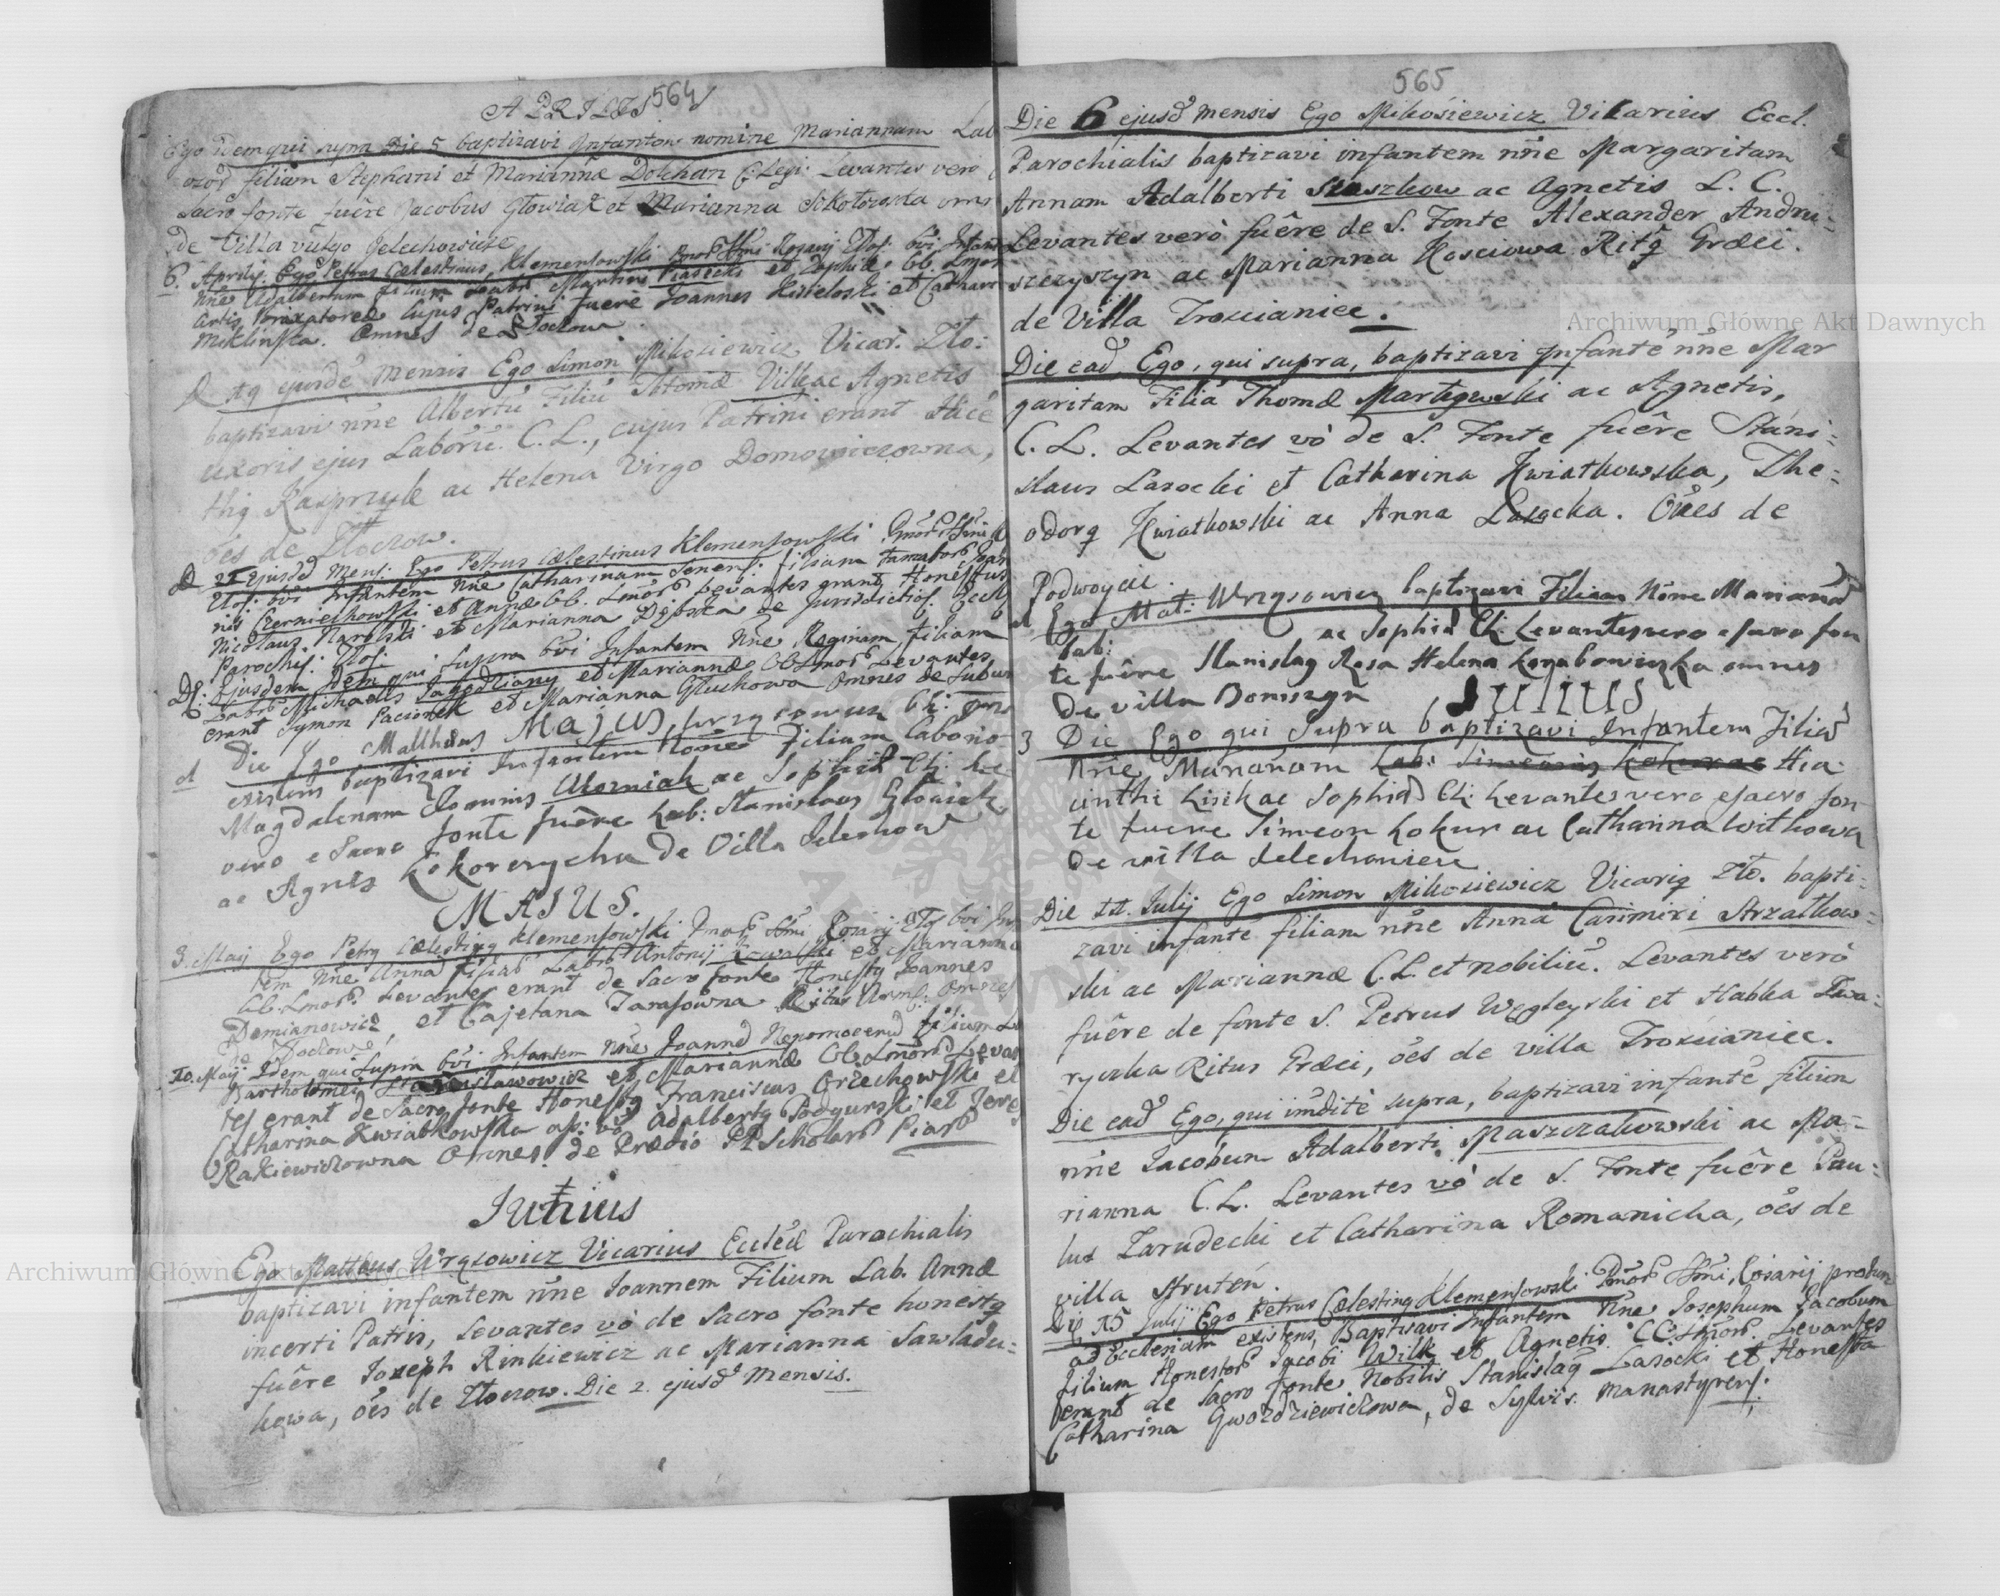 APRILIS 564
Ego idem qui supra Die 5 baptizavi Infantem nomine Mariannam Lab
filiam Stephani et Mariannæ Dolchan C: Legi: Levantes vero
Sacro fonte fuêre Jacobus Głowiak et Marianna Sokołowska omn
de Villa vulgo Jelechowice
6. Aprilis. Ego Petrus Cælestinus Klementowski Ssmi Rosarij Zloc: bvi Infan
nñe Adalbertum filium Martini Piasecki et Sophiæ CC. Lmor
Artis Braxatoreæ cujus Patrini fuere Joannes Kisieloski et Cathar
Miklinska. Omnes de Złoczow
D 19 ejusdē mensis Ego Simon Mikosiewicz Vicar. Zło:
baptizavi nñe Albertū Filiū Thomæ Wilk ac Agnetis
uxoris ejus Laborū. C. L., cujus Patrini erant Hice
thiq Kasprzyk ac Helena Virgo Domowiczowna,
oẽs de Złoczow.
D 21 Ejusdē Mens: Ego Petrus Cælestinus Klemensowski
Zloc: bvi Infantem Nñe Catharinam Senens: filiam famator Joan
nis Czerniechowski et Annæ CC. Lmor Levantes erant Honestus
Nicolaus Narolski et Marianna Dębska de Jurisdictio: Eccl
Parochis: Zloc:
D: Ejusdem Idem qui supra bvi Infantem Nñe Reginam filiam
Labor Michaelis Jagodziany et Mariannæ CC Lmor Levantes
erant Symon Paciorek et Marianna Głuchowa Omnes de Subur
MAJUS
d Die Ego Mattheus Wrzysowicz
existens baptizavi Infantem Nõne Filiam Laborio
Magdalenam Joannis Woźniak ac Sophiæ CL: Le
vero e Sacro fonte fuêre Lab: Stanislaus Głowiak
ac Agnes Kokorczycha de Villa Jelechow
MAIUS.
3. Maij Ego Petrq Cælestinq Klemensowski Rosarij Zlo bvi Inf
tem Nñe Annā filiā Labor Antonij Kowalski et Marianna
CC. Lmor. Levantes erant de Sacro fonte Honestq Joannes
Demianowicz, et Cajetana Tarasowna Ritus Arme: Omnes
de Złoczowe,
10. Maij. Idem qui supra bvi Infantem Nñe Joannē Nepomocenū filium L
Bartholomei Stanislawowicz et Mariannæ CC. Lmor Levan
tes erant de Sacro fonte Honestq Franciscus Orzechowski et
Catharina Kwiatkowska as: vō Adalbertq Podgurski et There
Rakiewiczowna Omnes de Prædio PP Scholar Piar
Iunius
Ego Mattheus Wrzesowicz Vicarius Ecclesiæ Parochialis
baptizavi infantem nñe Joannem Filium Lab. Annæ
incerti Patris, Levantes vò de Sacro fonte honestq
fuêre Joseph Rinkiewicz ac Marianna Sawladu-
kowa, oẽs de Złoczow. Die 2. ejusd Mensis.
565
Die 6 ejusd mensis Ego Mikosiewicz Vikarius Eccl.
Parochialis baptizavi infantem nñe Margaritam
Annam Adalberti Staszkow ac Agnetis L. C.
Levantes verò fuêre de S. Fonte Alexander Andru-
szczyszyn ac Marianna Kosciowa Ritq Græci.
de Villa Troscianiec.
Die ead Ego, qui supra, baptizavi Infantē nñe Mar
garitam Filiā Thomæ Martgowski ac Agnetis,
C. L. Levantes vò de S. Fonte fuêre Stani-
slaus Lasocki et Catharina Kwiatkowska, The-
odorq Kwiatkowski ac Anna Lasocka. Oẽs de
Podwoycie.
d Ego Mat: Wrzysowicz baptizavi Filiam Nõne Mariann
Lab: ac Sophiæ CL: Levantes vero e sacro fon
te fuêre Stanislaq Rosa Helena Korabowiczka omnes
De villa Boniszyn
JULIUS
3 Die Ego qui supra baptizavi Infantem Filiā
Nñe Mariañam Lab: Simeonis Kokurac Hia
cinthi Lisik ac Sophiæ CL: Levantes vero e sacro fon
te fuere Simeon Kokur ac Catharina Witkowa
de villa Jelechowiec
Die 11. Julij Ego Simon Mikosiewicz Vicariq Zło. bapti-
zavi infantē filiam nñe Annā Casimiri Strzałkow-
ski ac Mariannæ C. L. et nobiliū. Levantes verò
fuêre de fonte S. Petrus Węgleyski et Habka Twa-
ryczka Ritus Græci, oẽs de villa Troscianiec.
Die ead Ego, qui imditè supra, baptizavi infantē filium
nñe Jacobum Adalberti Maszczakowski ac Ma-
rianna C. L. Levantes vò de S. Fonte fuêre Pau-
lus Zarudecki et Catharina Romanicha, oẽs de
villa Strutyń.
Die 15 Julij Ego Petrus Cælestinq Klemensowski Pmor Ssmi Rosarij
ad Ecclesiam existens, Baptisavi Infantem Nñe Josephum Jacobum
filium Honestor Jacobi Wilk et Agnetis CC: Lmor. Levantes
erant de Sacro fonte Nobilis Stanislaq Lasocki et Honesta
Catharina Gwozdziewiczowa, de Sylvis Manastyrens:
Archiwum Główne Akt Dawnych
Archiwum Główne Akt Dawnych